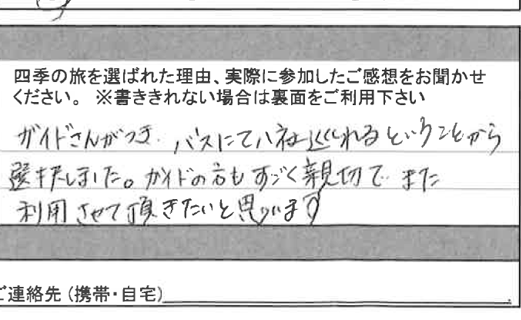 四季の旅を選ばれた理由、実際に参加したご感想をお聞かせ
ください。 ※書ききれない場合は裏面をご利用下さい
ガイドさんがつき、バスにて八社巡れるということから
選択しました。ガイドの方もすごく親切で また
利用させて頂きたいと思います
ご連絡先 (携帯・自宅)